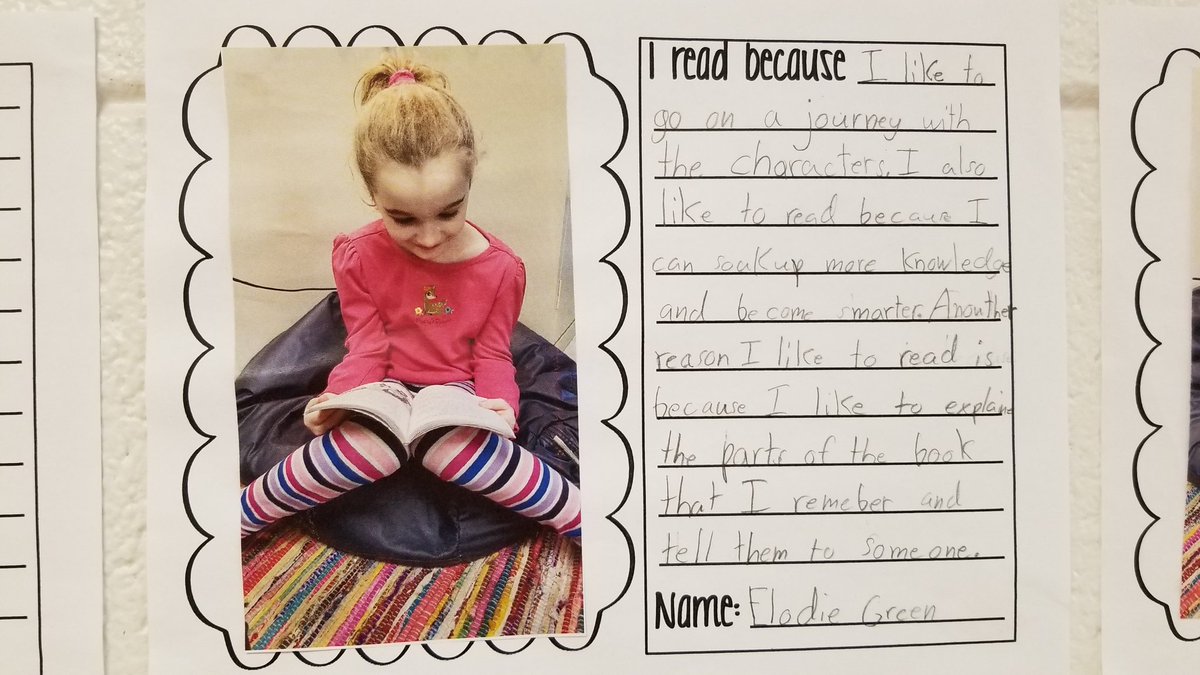 I read because I like to
go on a journey with
the characters. I also
like to read because I
can soak up more knowledge
and become smarter. Anouther
reason I like to read is
because I like to explaine
the parts of the book
that I remeber and
tell them to someone.
Name: Elodie Green